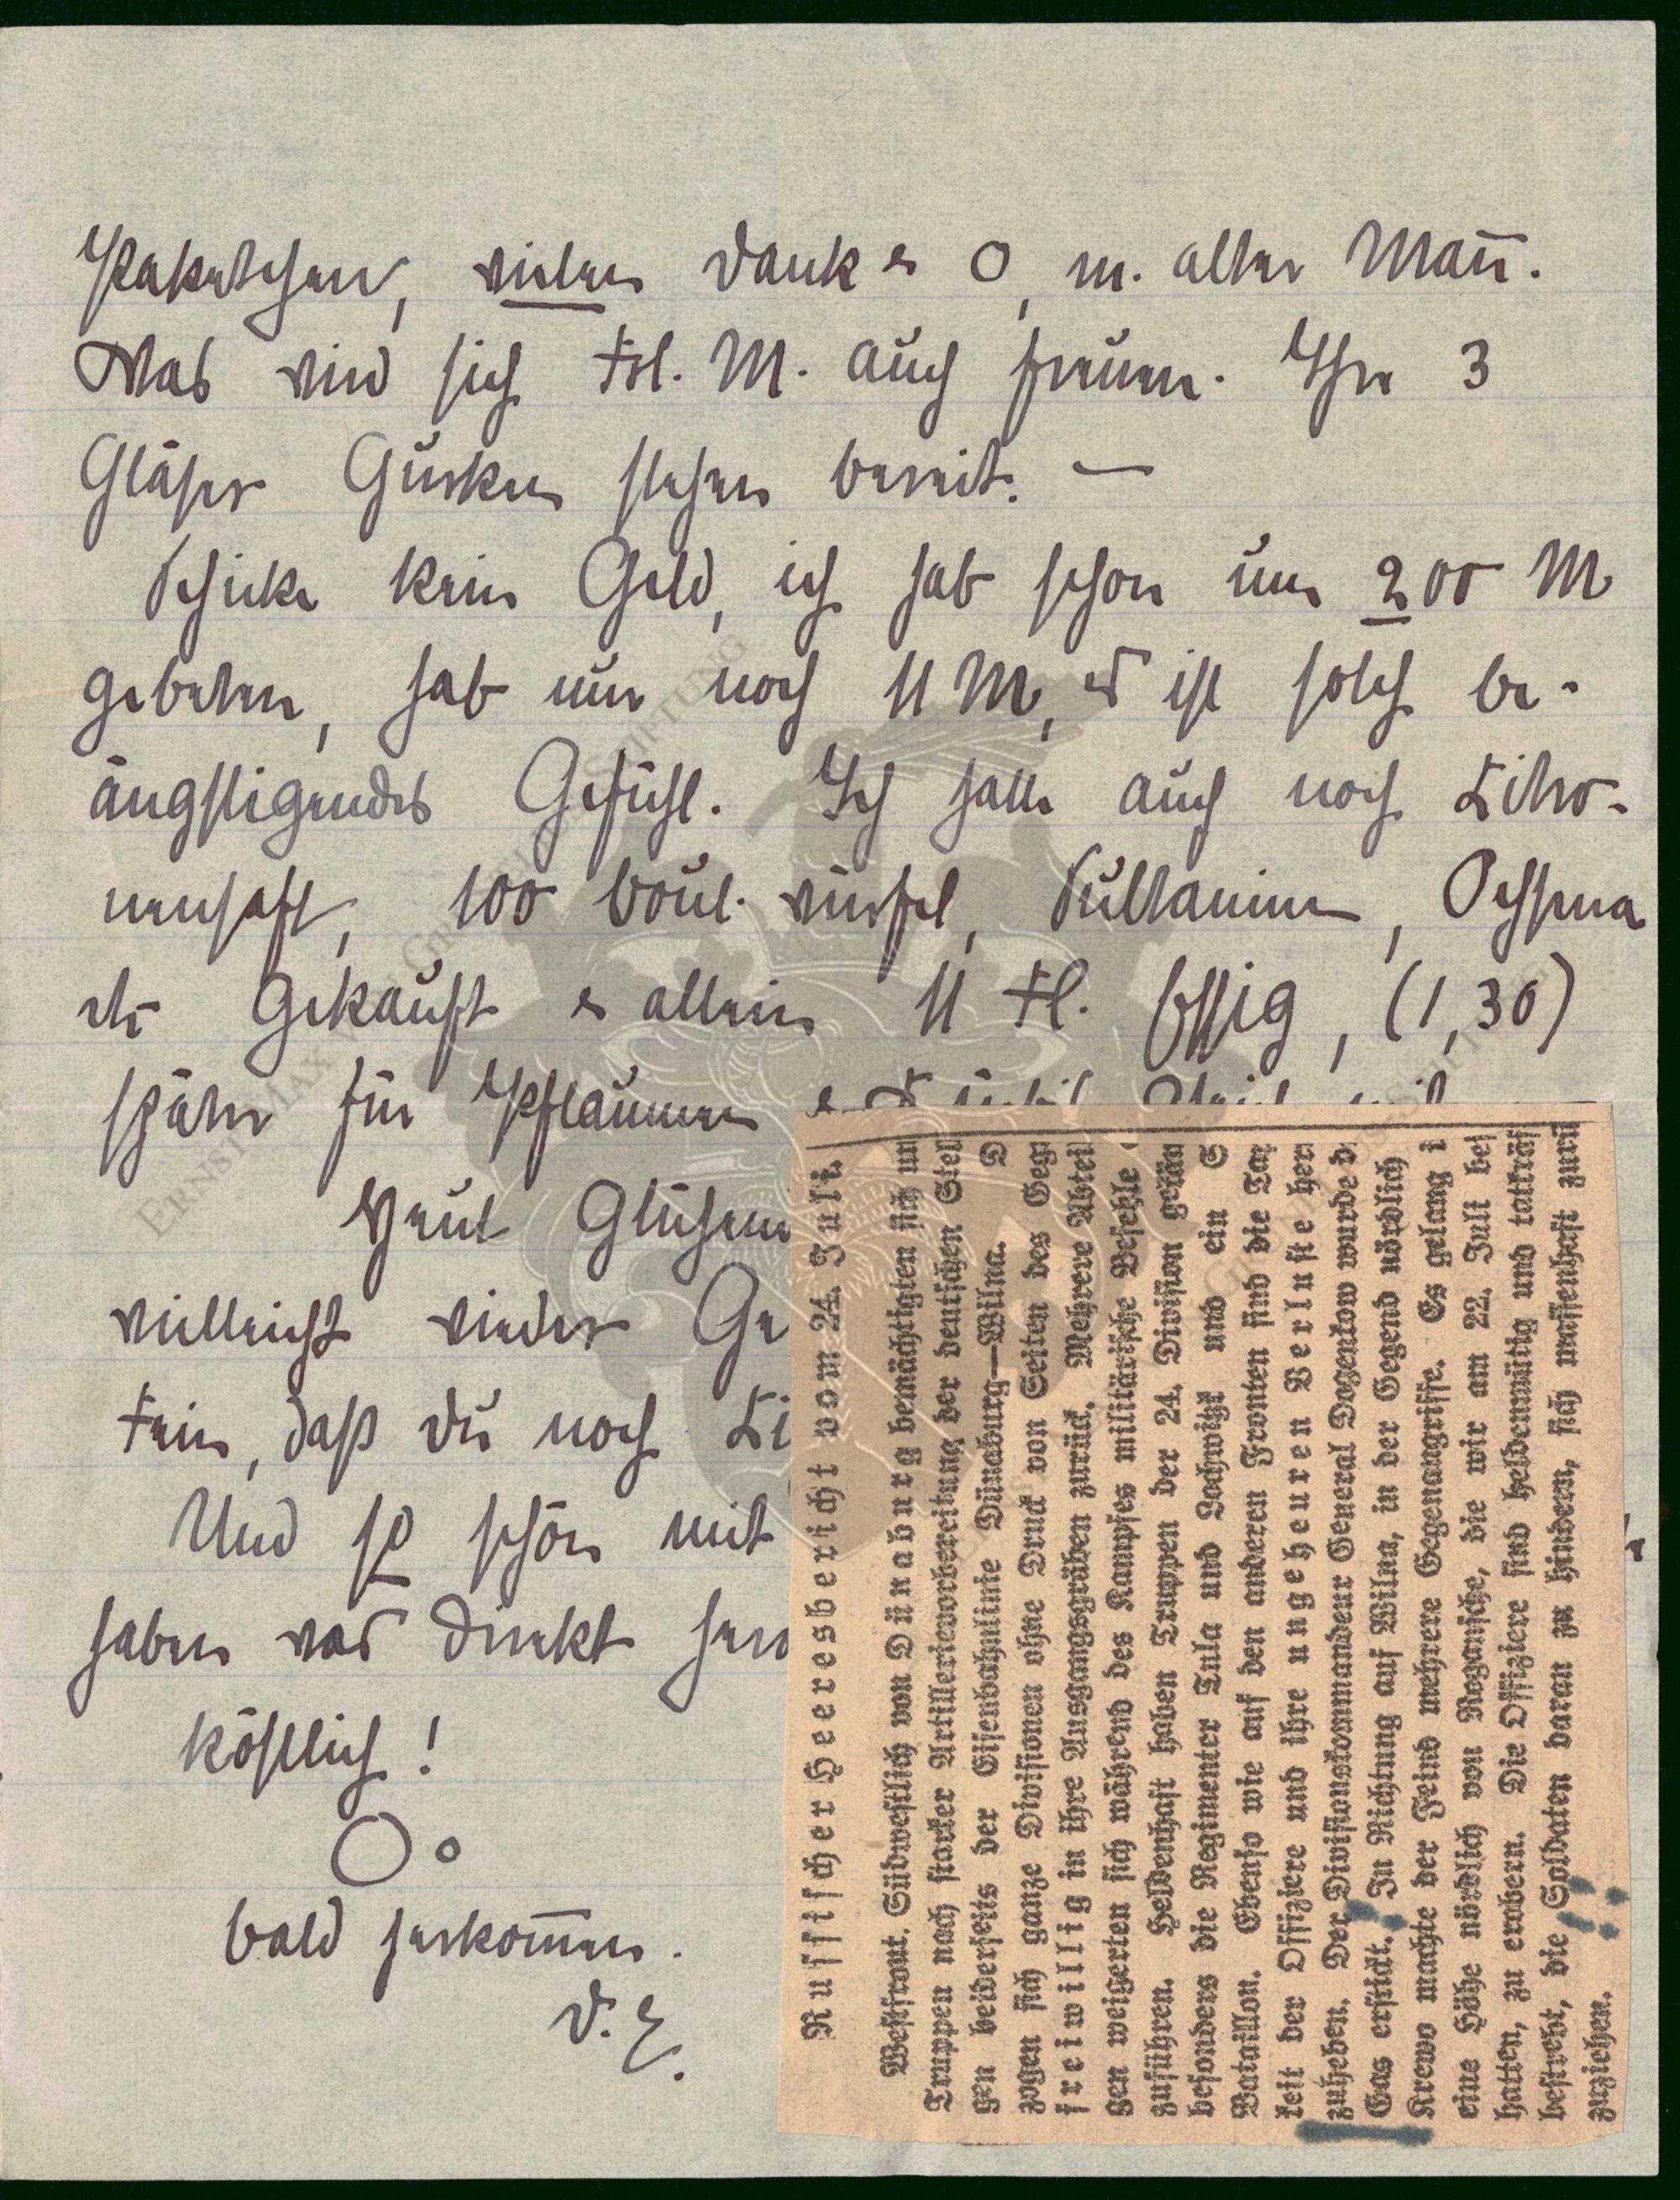 Paketchen, vielen Dank & O, m. alter Mañ.
Was wird sich Frl. M. auch freuen. Ihre 3
Gläser Gurken stehen bereit. —
Schicke kein Geld, ich hab schon um 200 M
gebeten, hab nur noch 11 M, 's ist solch be-
ängstigendes Gefühl. Ich hatte auch noch Citro-
nensaft, 100 Bouil. würfel, Sultaninen, Ochsena
etc gekauft & allein 11 Fl. Essig, (1,30)
später für Pflaumen &
Heut
vielleicht wieder Ge
Fein, daß Du noch Li
Und so schön mit
haben was direkt
köstlich!
O o
bald herkom̄en.
D. E.
Russischer Heeresbericht vom 24. Juli.
Westfront. Südwestlich von Dünaburg bemächtigten sich un
Truppen nach starker Artillerievorbereitung der deutschen Stel
gen beiderseits der Eisenbahnlinie Dünaburg—Wilna. D
zogen sich ganze Divisionen ohne Druck von Seiten des Geg
freiwillig in ihre Ausgangsgräben zurück. Mehrere Abtei
gen weigerten sich während des Kampfes militärische Befehle
zuführen. Heldenhaft haben Truppen der 24. Division
besonders die Regimenter Tula und Lochwizk und ein S
Bataillon. Ebenso wie auf den anderen Fronten sind die Tap
keit der Offiziere und ihre ungeheuren Verluste her
zuheben. Der Divisionskommandeur General Dogenkow wurde d
Gas erstickt. In Richtung auf Wilna, in der Gegend nördlich
Krewo machte der Feind mehrere Gegenangriffe. Es gelang i
eine Höhe nördlich von Roganische, die wir am 22. Juli bes
hatten, zu erobern. Die Offiziere sind heldenmütig und tatkräf
bestrebt, die Soldaten daran zu hindern, sich massenhaft zurü
zuziehen.
ERNST MAX VON
STIFTUNG